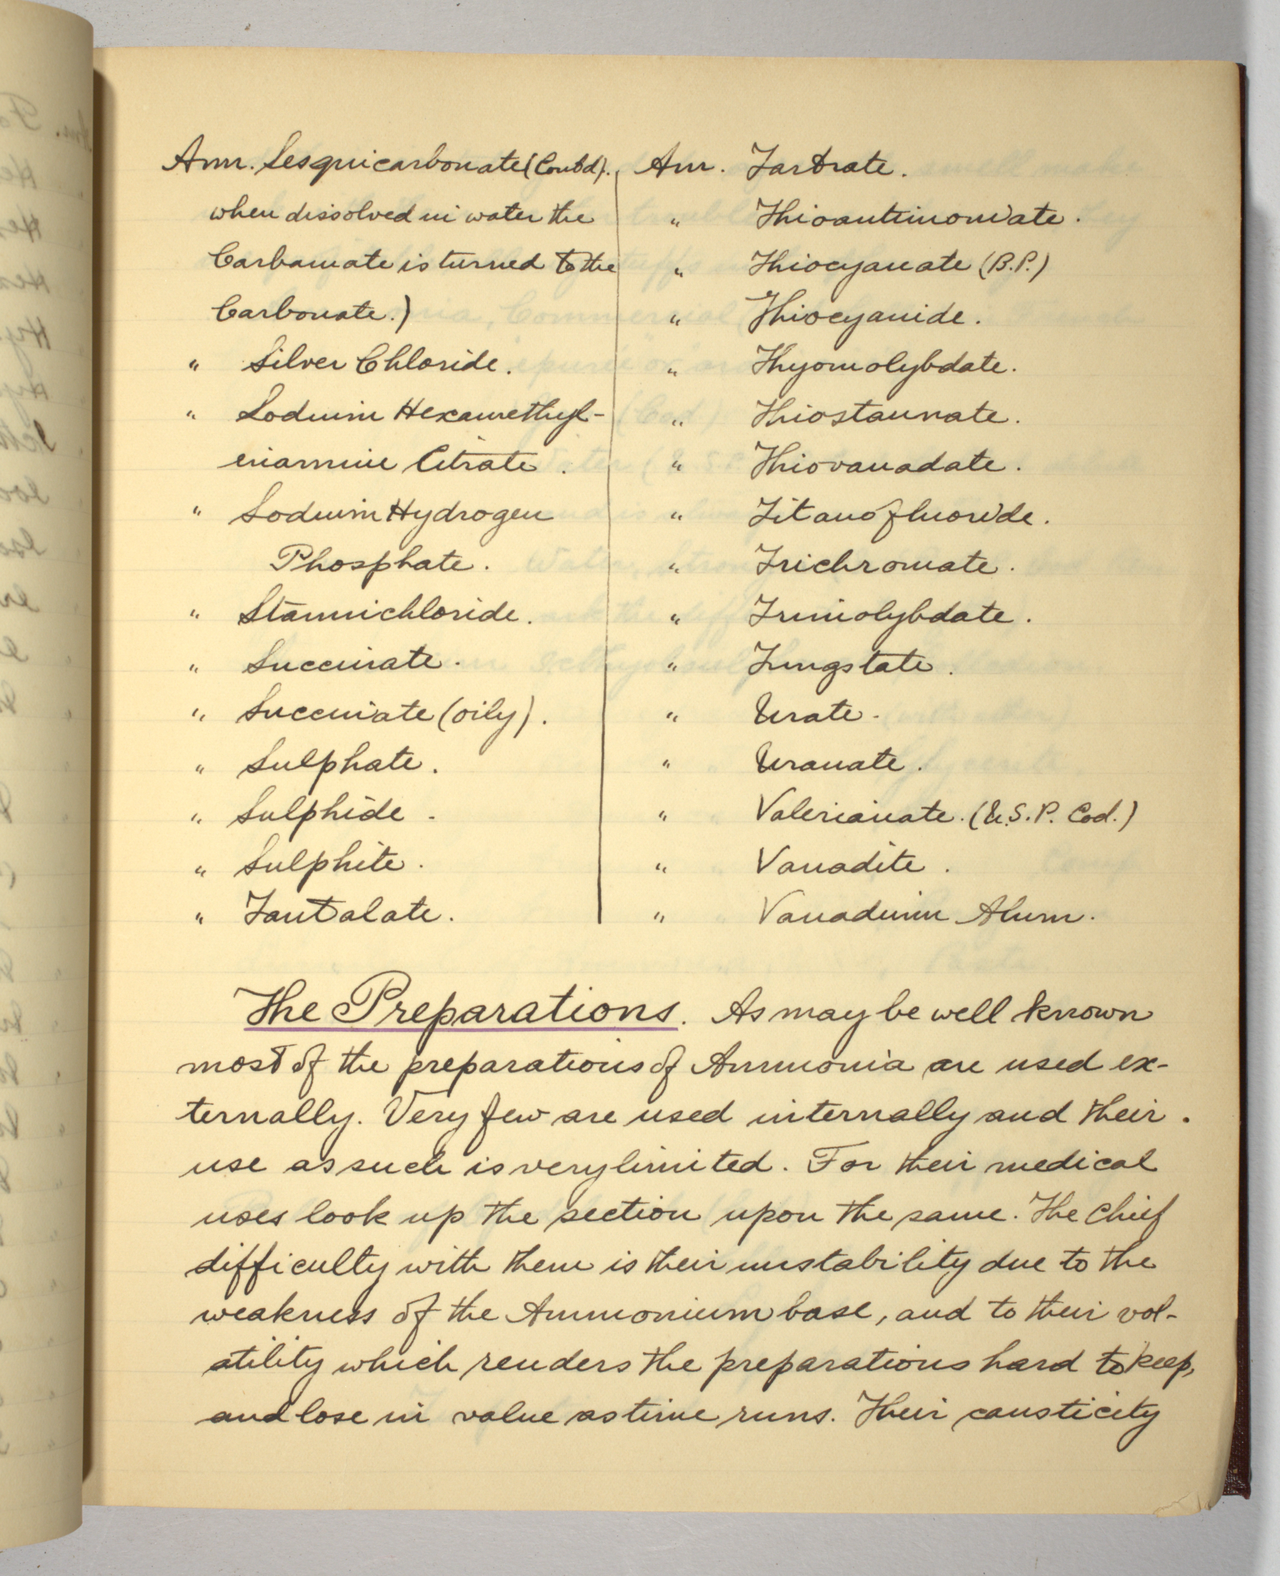 Amm. Sesquicarbonate (Contd).
when dissolved in water the
Carbamate is turned to the
Carbonate.)
" Silver Chloride.
" Sodium Hexamethyl-
enamine Citrate.
" Sodium Hydrogen
Phosphate.
" Stannichloride.
" Succinate.
" Succinate (oily).
" Sulphate.
" Sulphide.
" Sulphite.
" Tantalate.
Am. Tartrate.
" Thioantimoniate.
" Thiocyanate (B.P.)
" Thiocyanide.
" Thyomolybdate.
" Thiostannate.
" Thiovanadate.
" Titanofluoride.
" Trichromate.
" Trimolybdate.
" Tungstate.
" Urate.
" Uranate.
" Valerianate. (U.S.P. Cod.)
" Vanadite.
" Vanadium Alum.
The Preparations. As may be well known
most of the preparations of Ammonia are used ex-
ternally. Very few are used internally and their
use as such is very limited. For their medical
uses look up the section upon the same. The chief
difficulty with them is their unstability due to the
weakness of the Ammonium base, and to their vol-
atility which renders the preparations hard to keep,
and lose in value as time runs. Their causticity